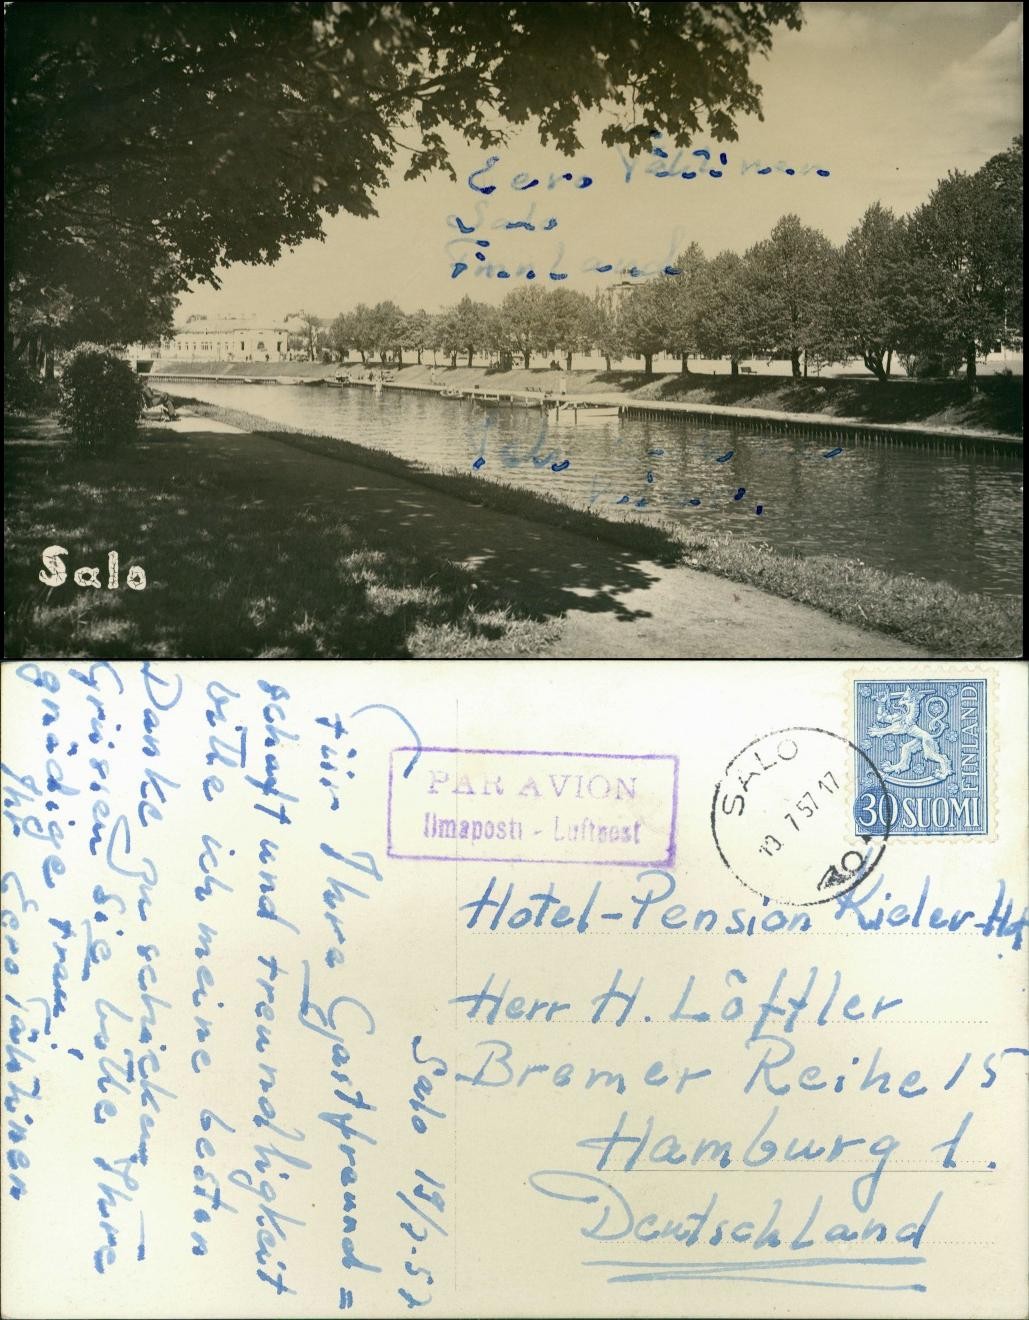 Eero Tähtinen
Salo
Finnland
Salo
Salo 19/7-57
Für Ihre Gastfreund=
schaft und freundligkeit
bitte ich meine besten
Danke zu schicken
Grüssen Sie bitte Ihre
gnädige Frau!
Ihr Eero Tähtinen
PAR AVION
Ilmaposti - Luftpost
SALO
19. 7 57 17
FINLAND
30 SUOMI
Hotel-Pension Kieler-Hof
Herr H. Löffler
Bremer Reihe 15
Hamburg 1.
Deutschland